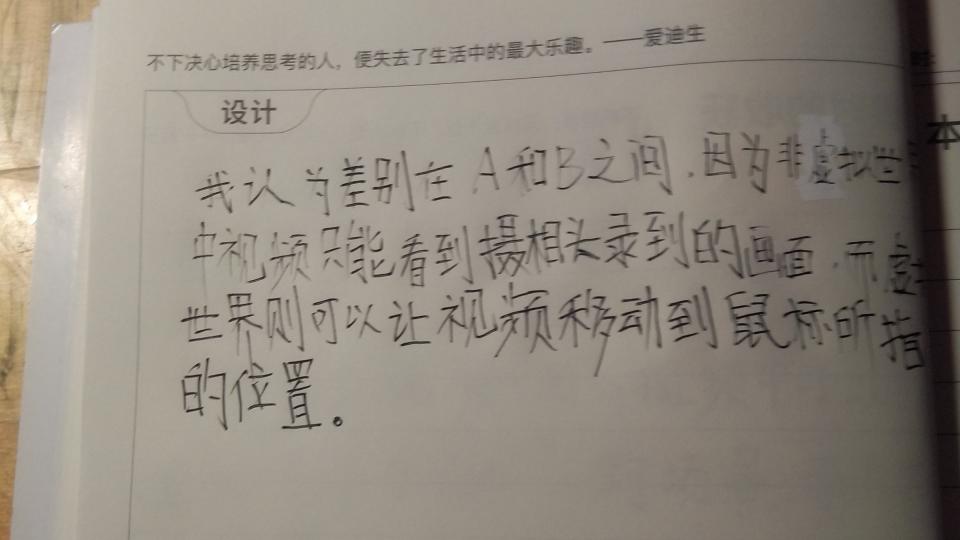 不下决心培养思考的人，便失去了生活中的最大乐趣。——爱迪生
设计
本
我认为差别在A和B之间，因为非虚拟世
中视频只能看到摄相头录到的画面，而虚
世界则可以让视频移动到鼠标所指
的位置。